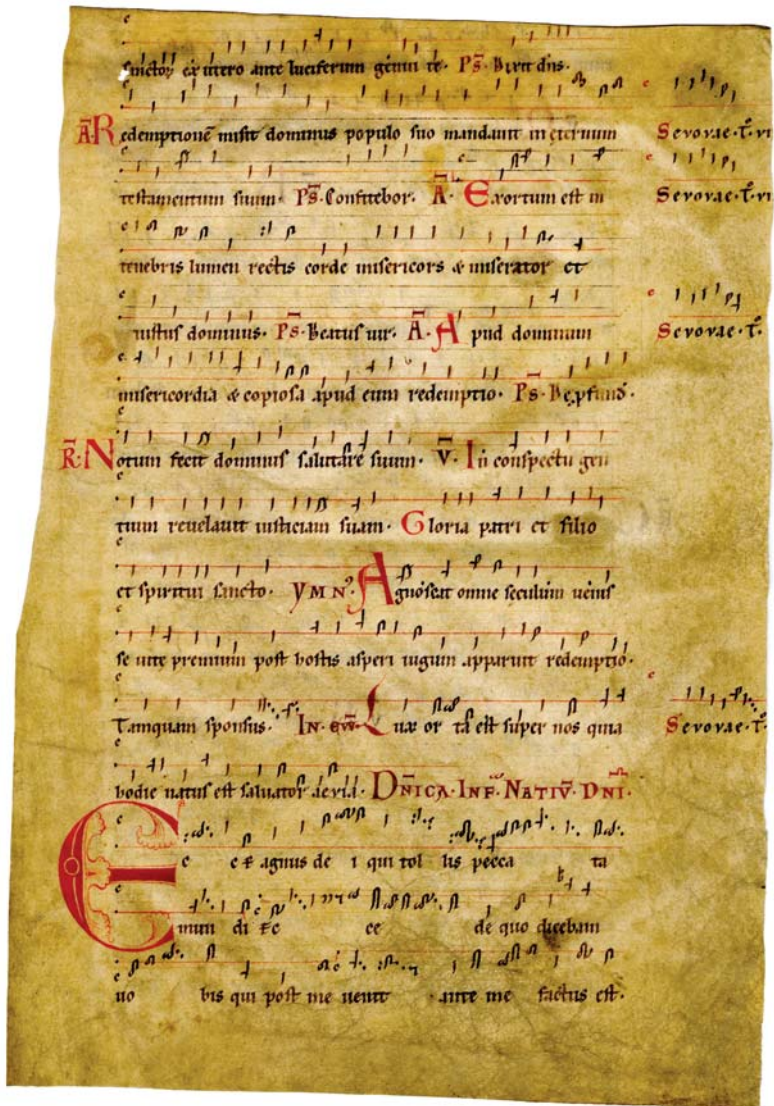 sanctorum ex utero ante luciferum genui te. Ps. Dixit dns.
A Redemptione misit dominus populo suo mandavit in eternum Sevovae. T. vii
testamentum suum. Ps. Confitebor. A. Exortum est in Sevovae. T. vii
tenebris lumen rectis corde misericors & miserator et
iustus dominus. Ps. Beatus uir. A. Apud dominum Sevovae. T.
misericordia & copiosa apud eum redemptio. Ps. De pfund.
R. Notum fecit dominus salutare suum. V. In conspectu gen
tium reuelauit iusticiam suam. Gloria patri et filio
et spiritui sancto. YMN. Agnoscat omne seculum uenis
se uite premium post hostis asperi iugum apparuit redemptio.
Tamquam sponsus. IN. EW. Lux or ta est super nos quia Sevovae. T.
hodie natus est saluator aevia. DNICA. INF. NATIV. DNI.
Ecce agnus de i qui tol lis pecca ta
mun di Ec ce de quo dicebam
uo bis qui post me uenit ante me factus est.